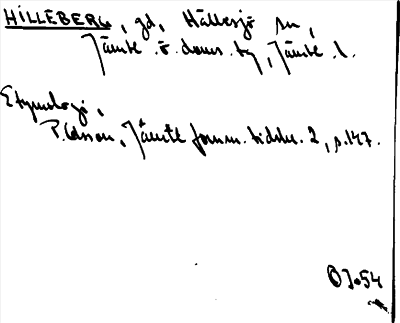 HILLEBERG, gd, Hällesjö sn,
Jämtl. ö. doms. tg, Jämtl. l.
Etymologi,
P. Olsson, Jämtl. fornm. tidskr. 2, s. 147.
OJ.54